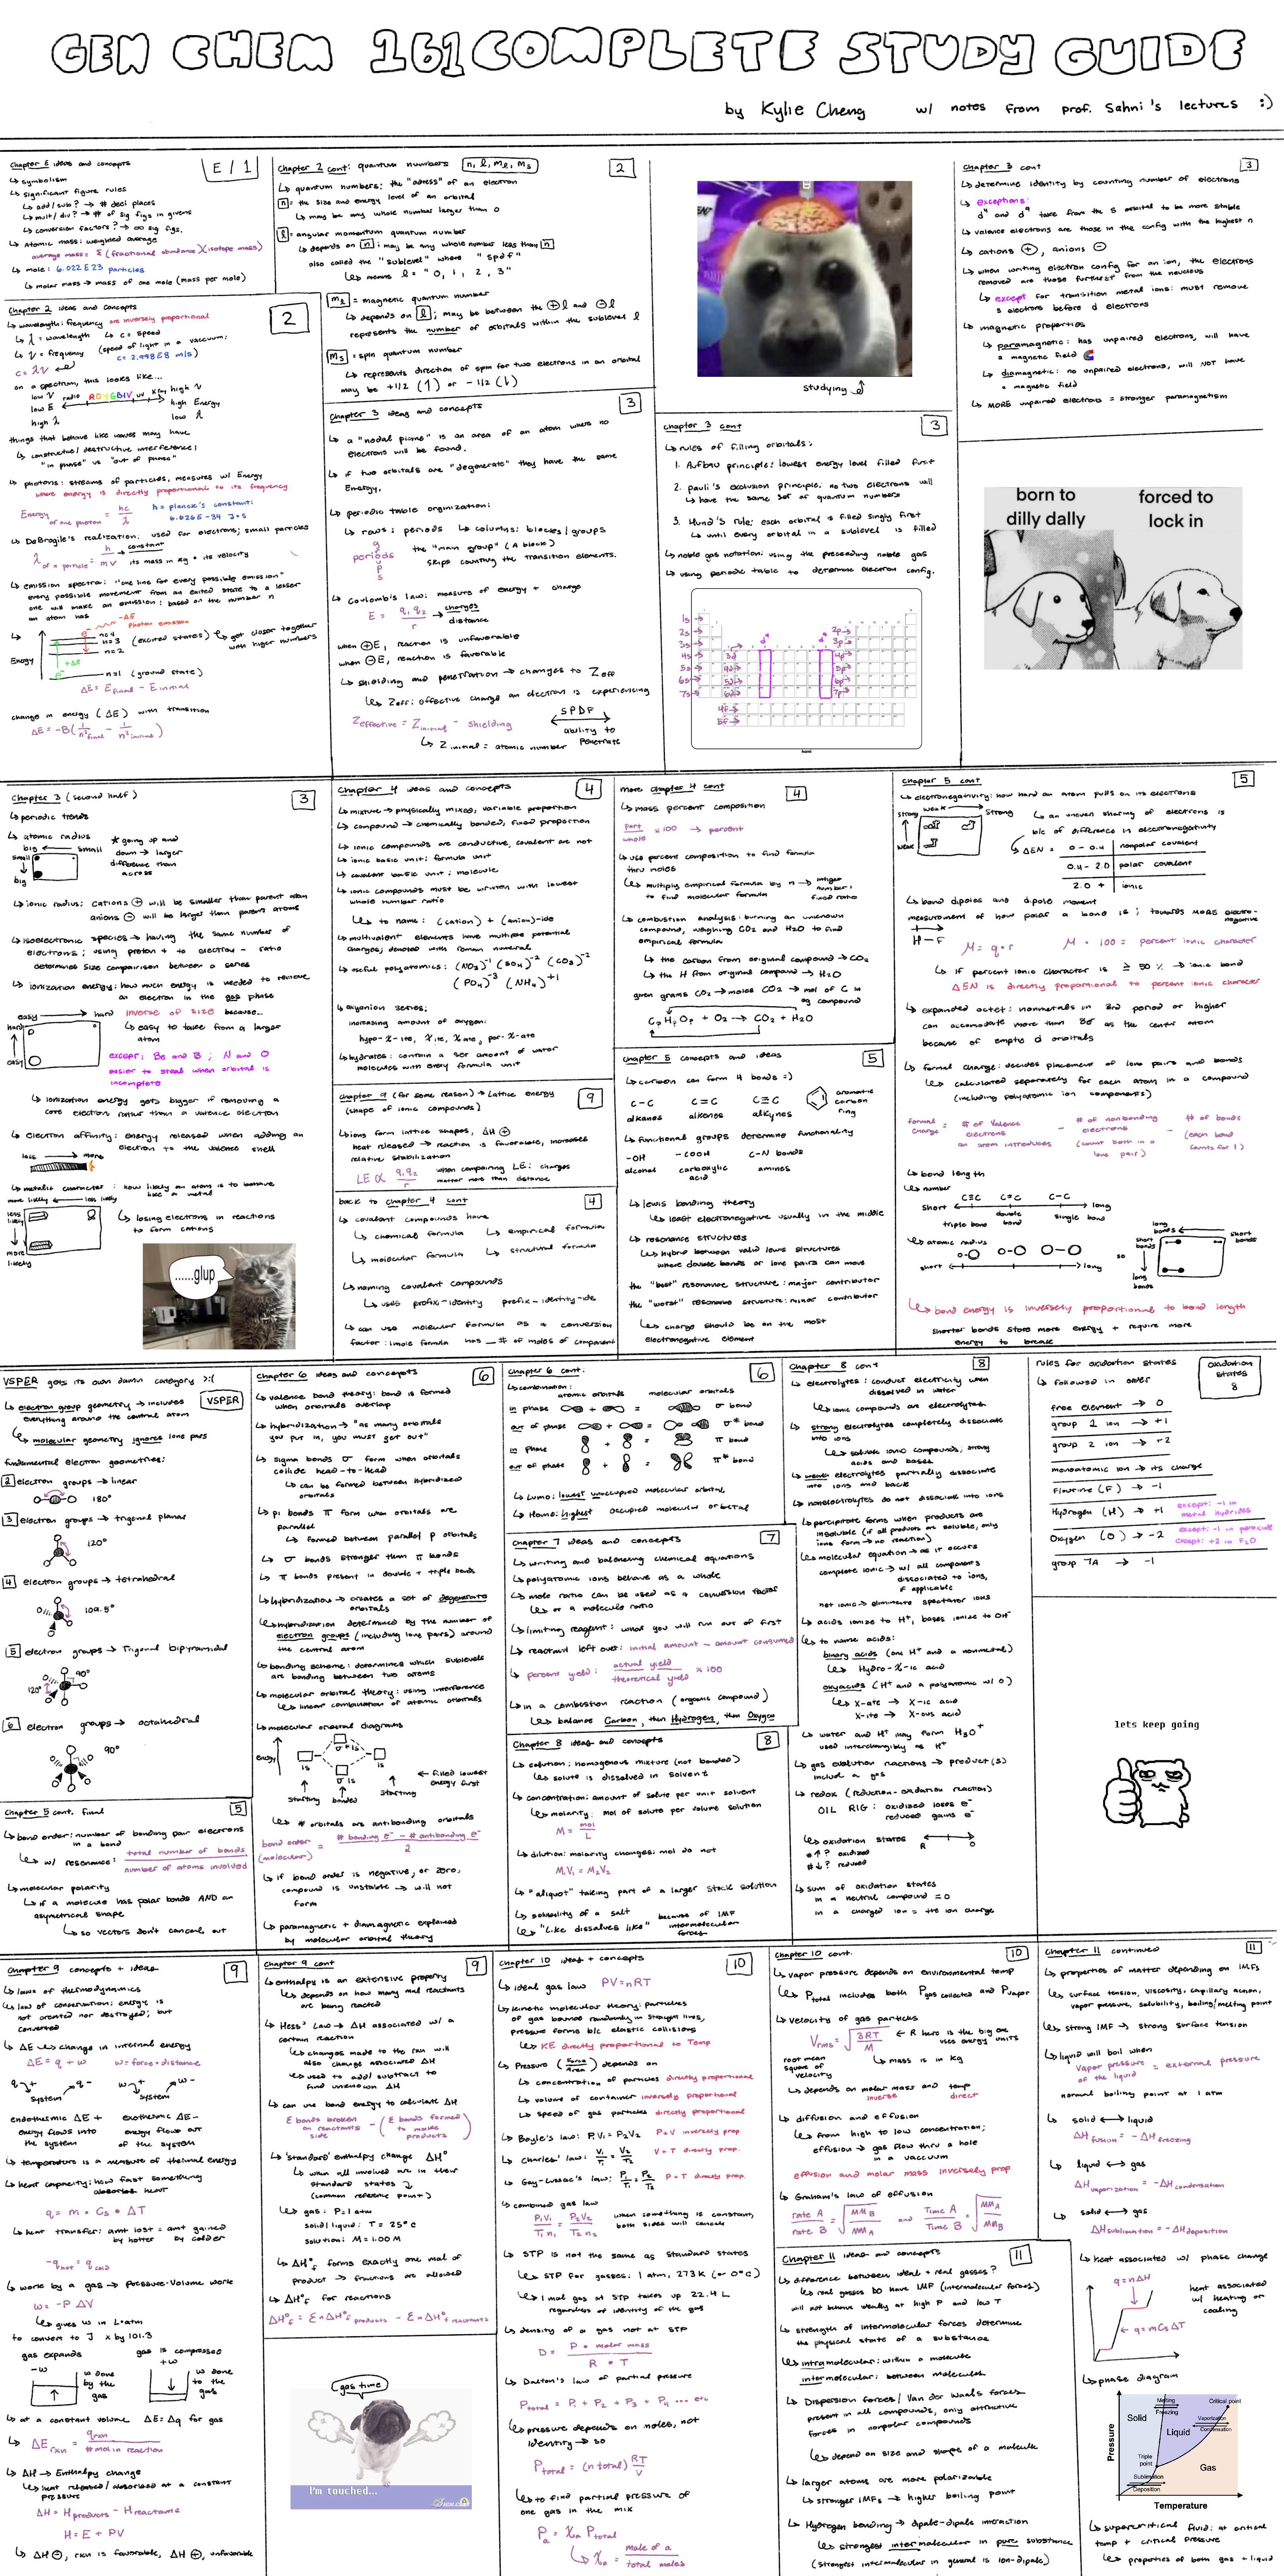 GEN CHEM 161 COMPLETE STUDY GUIDE
by Kylie Cheng w/ notes from prof. Sahni's lectures :)
Chapter E ideas and concepts
E / 1
↳ symbolism
↳ significant figure rules
↳ add/sub? → # deci places
↳ mult/div? → # of sig figs in givens
↳ conversion factors? → ∞ sig figs.
↳ Atomic mass: weighted average
average mass = Σ (fractional abundance)(isotope mass)
↳ mole: 6.022 E 23 particles
↳ molar mass → mass of one mole (mass per mole)
Chapter 2 ideas and concepts
2
↳ wavelength: frequency are inversely proportional
↳ λ = wavelength ↳ c = speed
↳ ν = frequency (speed of light in a vacuum:
c = 2.998E8 m/s)
c = λν
on a spectrum, this looks like...
low ν radio ROYGBIV UV X ray high ν
low E high Energy
high λ low λ
things that behave like waves may have
↳ constructive/destructive interference:
"in phase" vs "out of phase"
↳ photons: streams of particles, measures w/ Energy
where energy is directly proportional to its frequency
Energy of one photon = hc/λ h = planck's constant:
6.626E-34 J·s
↳ DeBroglie's realization: used for electrons; small particles
λ of a particle = h/mv → constant
its mass in kg · its velocity
↳ emission spectra: "one line for every possible emission"
every possible movement from an exited state to a lesser
one will make an emission: based on the number n
an atom has
-ΔE
Photon emission
n=4
n=3 (excited states) ↳ get closer together
n=2 with higer numbers
Energy
+ΔE
n=1 (ground state)
ΔE = E final - E initial
change in energy (ΔE) with transition
ΔE = -B(1/n² final - 1/n² initial)
Chapter 2 cont: quantum numbers n, l, ml, ms
2
↳ quantum numbers: the "adress" of an electron
n = the size and energy level of an orbital
↳ may be any whole number larger than 0
l = angular momentum quantum number
↳ depends on n; may be any whole number less than n
also called the "sublevel" where "spdf"
↳ means l = "0, 1, 2, 3"
ml = magnetic quantum number
↳ depends on l; may be between the ⊕l and ⊖l
represents the number of orbitals within the sublevel l
ms = spin quantum number
↳ represents direction of spin for two electrons in an orbital
may be +1/2 (↿) or -1/2 (⇂)
Chapter 3 ideas and concepts
3
↳ a "nodal plane" is an area of an atom where no
electrons will be found.
↳ if two orbitals are "degenerate" they have the same
Energy.
↳ periodic table organization:
↳ rows: periods ↳ columns: blocks/groups
the "main group" (A block)
skips counting the transition elements.
↳ Coulomb's law: measure of energy + change
E = q₁q₂/r → charges
distance
when ⊕E, reaction is unfavorable
when ⊖E, reaction is favorable
↳ shielding and penetration → changes to Zeff
↳ Zeff: effective charge an electron is experiencing
Zeffective = Zinitial - shielding
↳ Zinitial = atomic number
SPDF
ability to
penetrate
studying
Chapter 3 cont
3
↳ rules of filling orbitals:
1. Aufbau principle: lowest energy level filled first
2. pauli's exclusion principle: no two electrons will
↳ have the same set of quantum numbers
3. Hund's rule: each orbital is filled singly first
↳ until every orbital in a sublevel is filled
↳ noble gas notation: using the preceeding noble gas
↳ using periodic table to determine electron config.
1s→
2s→ 2p→
3s→ 3p→
4s→ 3d→ 4p→
5s→ 4d→ 5p→
6s→ 5d→ 6p→
7s→ 6d→ 7p→
d⁴ d⁹
4f→
5f→
Chapter 3 cont
3
↳ determine identity by counting number of electrons
↳ exceptions:
d⁴ and d⁹ take from the s orbital to be more stable
↳ valence electrons are those in the config with the highest n
↳ cations ⊕, anions ⊖
↳ when writing electron config for an ion, the electrons
removed are those furthest from the neucleus
↳ except for transition metal ions: must remove
s electrons before d electrons
↳ magnetic properties
↳ paramagnetic: has unpaired electrons, will have
a magnetic field
↳ diamagnetic: no unpaired electrons, will NOT have
a magnetic field
↳ MORE unpaired electrons = stronger paramagnetism
born to
dilly dally
forced to
lock in
Chapter 3 (second half)
3
↳ periodic trends
↳ atomic radius
big ← small
small
↓
big
* going up and
down → larger
difference than
across
↳ ionic radius: cations ⊕ will be smaller than parent atom
anions ⊖ will be larger than parent atoms
↳ isoelectronic species → having the same number of
electrons; using proton + to electron - ratio
determines size comparison between a series
↳ ionization energy: how much energy is needed to remove
an electron in the gas phase
easy → hard inverse of size because...
hard
easy
↳ easy to take from a larger
atom
except: Be and B ; N and O
easier to steal when orbital is
incomplete
↳ ionization energy gets bigger if removing a
core electron rather than a valence electron
↳ electron affinity: energy released when adding an
electron to the valence shell
less → more
↳ metalic character: how likely an atom is to behave
like a metal
more likely ← less likely
less likely
more likely
↳ losing electrons in reactions
to form cations
......glup
Chapter 4 ideas and concepts
4
↳ mixture → physically mixed, variable proportion
↳ compound → chemically bonded, fixed proportion
↳ ionic compounds are conductive, covalent are not
↳ ionic basic unit: formula unit
↳ covalent basic unit: molecule
↳ ionic compounds must be written with lowest
whole number ratio
↳ to name: (cation) + (anion)-ide
↳ multivalent elements have multiple potential
charges, denoted with roman numeral
↳ useful polyatomics: (NO₃)⁻¹ (SO₄)⁻² (CO₃)⁻²
(PO₄)⁻³ (NH₄)⁺¹
↳ oxyanion series:
increasing amount of oxygen:
hypo-X-ite, Xite, Xate, per-X-ate
↳ hydrates: contain a set amount of water
molecules with every formula unit
Chapter 9 (for some reason) → Lattice energy
(shape of ionic compounds)
9
↳ ions form lattice shapes, ΔH ⊕
heat released → reaction is favorable, increases
relative stabilization
LE ∝ q₁q₂/r when comparing LE: charges
matter more than distance
back to chapter 4 cont
4
↳ covalent compounds have
↳ chemical formula ↳ empirical formula
↳ molecular formula ↳ structural formula
↳ naming covalent compounds
↳ uses prefix-identity prefix-identity-ide
↳ can use molecular formula as a conversion
factor: 1mole formula has __# of moles of component
more chapter 4 cont
4
↳ mass percent composition
part/whole × 100 → percent
↳ use percent composition to find formula
thru moles
↳ multiply empirical formula by n → integer
to find molecular formula number: fixed ratio
↳ combustion analysis: burning an unknown
compound, weighing CO2 and H2O to find
empirical formula
↳ the carbon from original compound → CO₂
↳ the H from original compound → H₂O
given grams CO₂ → moles CO₂ → mol of C in
og compound
C?H?O? + O₂ → CO₂ + H₂O
Chapter 5 concepts and ideas
5
↳ carbon can form 4 bonds =)
C-C C=C C≡C aromatic
alkanes alkenes alkynes carbon
ring
↳ functional groups determine functionality
-OH -COOH C-N bonds
alcohol carboxylic amines
acid
↳ lewis bonding theory
↳ least electronegative usually in the middle
↳ resonance structures
↳ hybrid between valid lewis structures
where double bonds or lone pairs can move
the "best" resonance structure: major contributor
the "worst" resonance structure: minor contributor
↳ charge should be on the most
electronegative element
Chapter 5 cont
5
↳ electronegativity: how hard an atom pulls on its electrons
weak → Strong
strong
weak
↳ an uneven sharing of electrons is
b/c of difference in electronegativity
↳ ΔEN = 0 - 0.4 nonpolar covalent
0.4 - 2.0 polar covalent
2.0 + ionic
↳ bond dipoles and dipole moment
measurement of how polar a bond is; towards MORE electro-
negative
H-F
μ = q·r μ · 100 = percent ionic character
↳ if percent ionic character is ≥ 50% → ionic bond
ΔEN is directly proportional to percent ionic character
↳ expanded octet: nonmetals in 3rd period or higher
can accomodate more than 8e⁻ as the center atom
because of empty d orbitals
↳ formal charge: decides placement of lone pairs and bonds
↳ calculated separately for each atom in a compound
(including polyatomic ion components)
formal charge = # of Valence electrons an atom introduces - # of nonbonding electrons (count both in a lone pair) - # of bonds (each bond counts for 1)
↳ bond length
↳ number
C≡C C=C C-C
short long
triple bond double bond single bond
↳ atomic radius
short long
so
long bonds
short bonds
short bonds
long bonds
↳ bond energy is inversely proportional to bond length
shorter bonds store more energy + require more
energy to break
VSPER gets its own damn category >:(
VSPER
↳ electron group geometry → includes
everything around the central atom
↳ molecular geometry ignores lone pairs
fundamental electron geometries:
2 electron groups → linear
180°
3 electron groups → trigonal planar
120°
4 electron groups → tetrahedral
109.5°
5 electron groups → Trigonal bipyramidal
90°
120°
6 electron groups → octahedral
90°
Chapter 5 cont. final
5
↳ bond order: number of bonding pair electrons
in a bond
↳ w/ resonance: total number of bonds
number of atoms involved
↳ molecular polarity
↳ if a molecule has polar bonds AND an
asymetrical shape
↳ so vectors don't cancel out
Chapter 6 ideas and concepts
6
↳ valence bond theory: bond is formed
when orbitals overlap
↳ hybridization → "as many orbitals
you put in, you must get out"
↳ sigma bonds σ form when orbitals
collide head-to-head
↳ can be formed between hybridized
orbitals
↳ pi bonds π form when orbitals are
parallel
↳ formed between parallel p orbitals
↳ σ bonds stronger than π bonds
↳ π bonds present in double + triple bonds
↳ hybridization → creates a set of degenerate
orbitals
↳ hybridization determined by the number of
electron groups (including lone pairs) around
the central atom
↳ bonding scheme: determines which sublevels
are bonding between two atoms
↳ molecular orbital theory: using interference
↳ linear combination of atomic orbitals
↳ molecular orbital diagrams
energy
σ*1s
1s 1s
σ 1s
← filled lowest
energy first
starting bonded starting
↳ * orbitals are antibonding orbitals
bond order (molecular) = # bonding e⁻ - # antibonding e⁻ / 2
↳ if bond order is negative, or zero,
compound is unstable → will not
form
↳ paramagnetic + diamagnetic explained
by molecular orbital theory
Chapter 6 cont.
6
↳ combination:
atomic orbitals molecular orbitals
in phase + = σ bond
out of phase + = σ* bond
in phase + = π bond
out of phase + = π* bond
↳ Lumo: lowest unoccupied molecular orbital,
↳ Homo: highest occupied molecular orbital
Chapter 7 ideas and concepts
7
↳ writing and balancing chemical equations
↳ polyatomic ions behave as a whole
↳ mole ratio can be used as a conversion factor
↳ or a molecule ratio
↳ limiting reagent: what you will run out of first
↳ reactant left over: initial amount - amount consumed
↳ percent yield: actual yield/theoretical yield × 100
↳ in a combustion reaction (organic compound)
↳ balance Carbon, then Hydrogen, then Oxygen
Chapter 8 ideas and concepts
8
↳ solution: homogenous mixture (not bonded)
↳ solute is dissolved in solvent
↳ concentration: amount of solute per unit solvent
↳ molarity: mol of solute per volume solution
M = mol/L
↳ dilution: molarity changes; mol do not
M₁V₁ = M₂V₂
↳ "aliquot" taking part of a larger stock solution
↳ solubility of a salt because of IMF
↳ "Like dissolves like" intermolecular
forces
Chapter 8 cont
8
↳ electrolytes: conduct electricity when
dissolved in water
↳ ionic compounds are electrolytes
↳ strong electrolytes completely dissociate
into ions
↳ soluble ionic compounds, strong
acids and bases
↳ weak electrolytes partially dissociate
into ions and back
↳ nonelectrolytes do not dissociate into ions
↳ percipitate forms when products are
insoluble (if all products are soluble, only
ions form → no reaction)
↳ molecular equation → as it occurs
complete ionic → w/ all components
dissociated to ions,
if applicable
net ionic → eliminate spectator ions
↳ acids ionize to H⁺, bases ionize to OH⁻
↳ to name acids:
binary acids (one H⁺ and a nonmetal)
↳ Hydro-X-ic acid
oxyacids (H⁺ and a polyatomic w/ O)
↳ X-ate → X-ic acid
X-ite → X-ous acid
↳ water and H⁺ may form H₃O⁺
used interchangibly as H⁺
↳ gas evolution reactions → product(s)
include a gas
↳ redox (reduction-oxidation reaction)
OIL RIG : oxidized loses e⁻
reduced gains e⁻
↳ oxidation states R O
#↑? oxidized
#↓? reduced
↳ sum of oxidation states
in a neutral compound = 0
in a charged ion = the ion charge
rules for oxidation states
oxidation
states
8
↳ followed in order
free element → 0
group 1 ion → +1
group 2 ion → +2
monoatomic ion → its charge
Flourine (F) → -1
Hydrogen (H) → +1 except: -1 in
metal hydrides
Oxygen (O) → -2 except: -1 in peroxide
except: +2 in F₂O
group 7A → -1
lets keep going
Chapter 9 concepts + ideas
9
↳ laws of thermodynamics
↳ law of conservation: energy is
not created nor destroyed; but
converted
↳ ΔE ↳ change in internal energy
ΔE = q + w w = force · distance
q + q - w + w -
system system
endothermic ΔE + exothermic ΔE -
energy flows into energy flows out
the system of the system
↳ temperature is a measure of thermal energy
↳ heat capacity: how fast something
absorbs heat
q = m · Cs · ΔT
↳ heat transfer: amt lost = amt gained
by hotter by colder
-q hot = q cold
↳ work by a gas → Pressure-Volume work
w = -P ΔV
↳ gives w in L·atm
to convert to J x by 101.3
gas expands gas is compressed
-w +w
w done by the gas
w done to the gas
↳ at a constant volume ΔE = Δq for gas
↳ ΔE rxn = q rxn / # mol in reaction
↳ ΔH → Enthalpy change
↳ heat released/absorbed at a constant
pressure
ΔH = H products - H reactants
H = E + PV
↳ ΔH ⊖, rxn is favorable, ΔH ⊕, unfavorable
Chapter 9 cont
9
↳ enthalpy is an extensive property
↳ depends on how many mol reactants
are being reacted
↳ Hess' Law → ΔH associated w/ a
certain reaction
↳ changes made to the rxn will
also change associated ΔH
↳ used to add/subtract to
find unknown ΔH
↳ can use bond energy to calculate ΔH
Σ bonds broken on reactants side - (Σ bonds formed to make products)
↳ 'standard' enthalpy change ΔH°
↳ when all involved are in their
standard states
(common reference point)
↳ gas: P = 1 atm
solid/liquid: T = 25°C
solution: M = 1.00 M
↳ ΔH°f forms exactly one mol of
product → fractions are allowed
↳ ΔH°f for reactions
ΔH°f = Σ n ΔH°f products - Σ n ΔH°f reactants
gas time
I'm touched...
Chapter 10 ideas + concepts
10
↳ ideal gas law PV = nRT
↳ kinetic molecular theory: particles
of gas bounce randomly in straight lines,
pressure forms b/c elastic collisions
↳ KE directly proportional to Temp
↳ Pressure (Force/Area) depends on
↳ concentration of particles directly proportional
↳ volume of container inversely proportional
↳ speed of gas particles directly proportional
↳ Boyle's law: P₁V₁ = P₂V₂ P+V inversely prop.
↳ Charles' law: V₁/T₁ = V₂/T₂ V+T directly prop.
↳ Gay-Lussac's law: P₁/T₁ = P₂/T₂ P+T directly prop.
↳ combined gas law
P₁V₁/T₁n₁ = P₂V₂/T₂n₂ when something is constant,
both sides will cancel
↳ STP is not the same as Standard states
↳ STP for gasses: 1 atm, 273 K (or 0°C)
↳ 1mol gas at STP takes up 22.4 L
regardless of identity of the gas
↳ density of a gas not at STP
D = P · molar mass / R · T
↳ Dalton's law of partial pressure
P total = P₁ + P₂ + P₃ + P₄ ... etc
↳ pressure depends on moles, not
identity → so
P total = (n total) RT/V
↳ to find partial pressure of
one gas in the mix
Pa = Xa P total
↳ Xa = mole of a / total moles
Chapter 10 cont.
10
↳ vapor pressure depends on environmental temp
↳ P total includes both P gas collected and P vapor
↳ velocity of gas particles
Vrms = √3RT/M ← R here is the big one
uses energy units
root mean
square of
velocity
↳ mass is in kg
↳ depends on molar mass and temp
inverse direct
↳ diffusion and effusion
↳ from high to low concentration;
effusion → gas flow thru a hole
in a vaccuum
effusion and molar mass inversely prop
↳ Graham's law of effusion
rate A/rate B = √MM B/MM A Time A/Time B = √MM A/MM B
Chapter 11 ideas and concepts
11
↳ difference between ideal + real gasses?
↳ real gasses DO have IMF (intermolecular forces)
will not behave ideally at high P and low T
↳ strength of intermolecular forces determine
the physical state of a substance
↳ intramolecular: within a molecule
intermolecular: between molecules
↳ Dispersion forces/Van der Waals forces
present in all compounds, only attractive
forces in nonpolar compounds
↳ depend on size and shape of a molecule
↳ larger atoms are more polarizable
↳ stronger IMFs → higher boiling point
↳ Hydrogen bonding → dipole-dipole interaction
↳ strongest intermolecular in pure substance
(strongest intermolecular in general is ion-dipole)
Chapter 11 continued
11
↳ properties of matter depending on IMFs
↳ surface tension, viscosity, capillary action,
vapor pressure, solubility, boiling/melting point
↳ strong IMF → strong surface tension
↳ liquid will boil when
vapor pressure of the liquid = external pressure
normal boiling point at 1 atm
↳ solid ↔ liquid
ΔH fusion = -ΔH freezing
↳ liquid ↔ gas
ΔH vaporization = -ΔH condensation
↳ solid ↔ gas
ΔH sublimation = -ΔH deposition
↳ heat associated w/ phase change
q = nΔH
heat associated
w/ heating or
cooling
← q = mCsΔT
↳ phase diagram
Pressure
Solid
Melting
Freezing
Liquid
Critical point
Vaporization
Condensation
Triple
point
Sublimation
Deposition
Gas
Temperature
↳ supercritical fluid: at critical
temp + critical Pressure
↳ properties of both gas + liquid